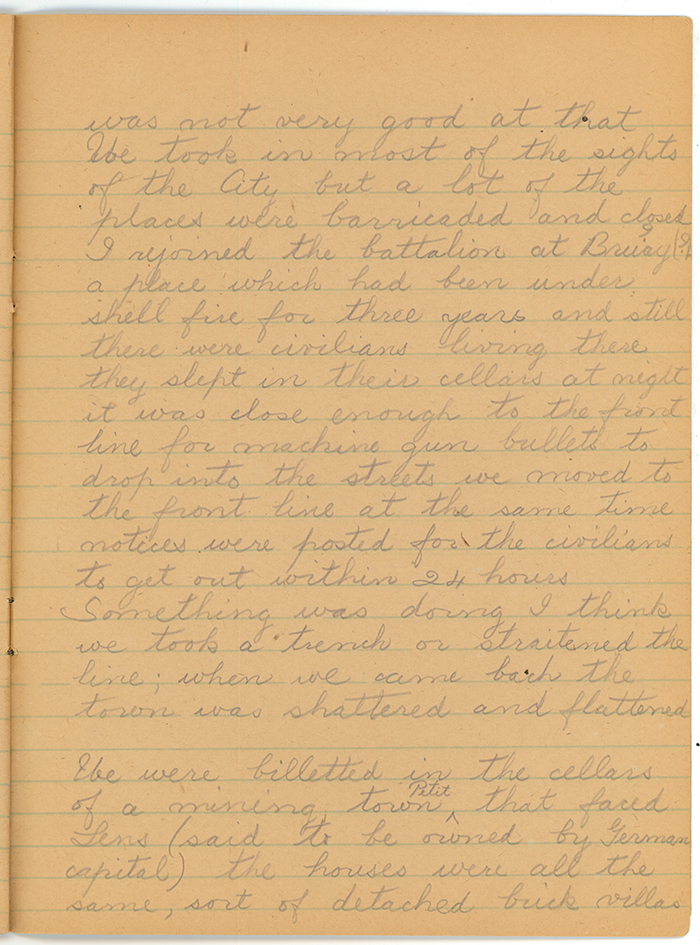 was not very good at that
We took in most of the sights
of the City but a lot of the
places were barricaded and closed
I rejoined the battalion at Bruay (?)
a place which had been under
shell fire for three years and still
there were civilians living there
they slept in their cellars at night
it was close enough to the front
line for machine gun bullets to
drop into the streets we moved to
the front line at the same time
notices were posted for the civilians
to get out within 24 hours
Something was doing I think
we took a trench or straitened the
line; when we came back the
town was shattered and flattened
We were billetted in the cellars
of a mining town Petit ^ that faced
Lens (said to be owned by German
capital) the houses were all the
same, sort of detached brick villas